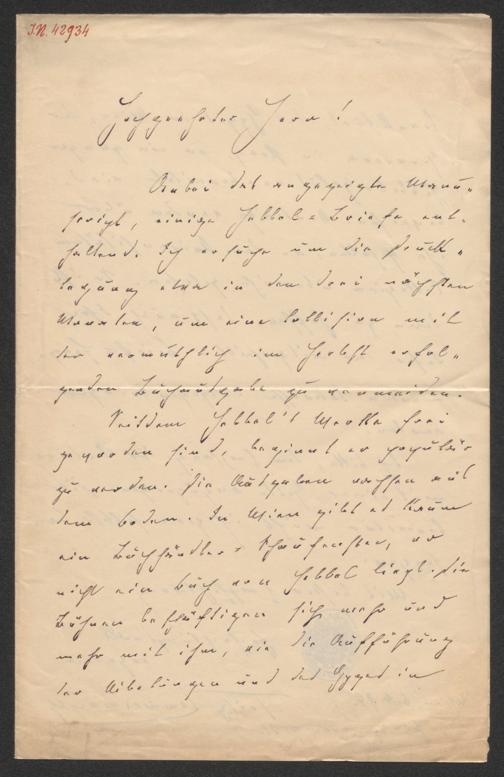 I.N. 42934
Hochgeehrter Herr!
Anbei das angezeigte Manu-
script, einige Hebbel-Briefe ent-
haltend. Ich ersuche um die Druck-
legung etwa in den drei nächsten
Monaten, um eine Collision mit
der vermuthlich im Herbst erfol-
genden Buchausgabe zu vermeiden.
Seitdem Hebbel's Werke frei
geworden sind, beginnt er populär
zu werden. Die Ausgaben wachsen aus
dem Boden. In Wien gibt es kaum
ein Buchhändler-Schaufenster, wo
nicht ein Buch von Hebbel liegt. Die
Bühnen beschäftigen sich mehr und
mehr mit ihm, wie die Aufführung
der Nibelungen und des Gyges in